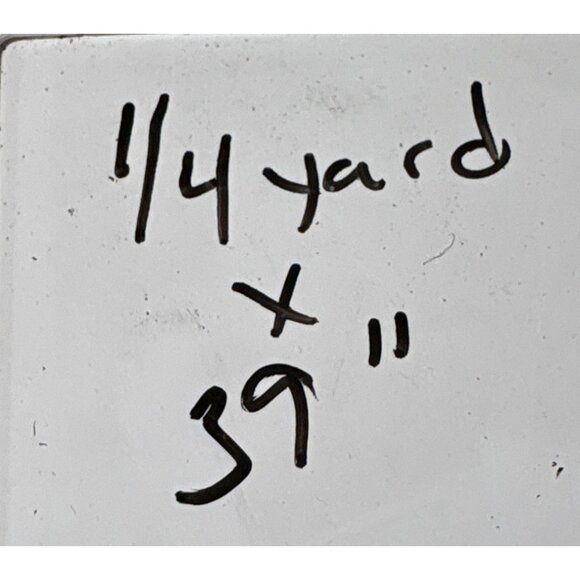 1/4 yard
x
39"